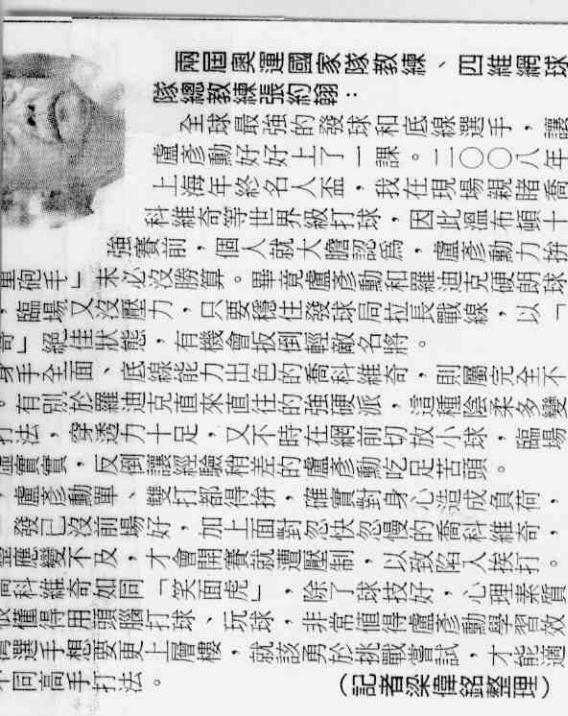 兩屆奧運國家隊教練、四維網球
隊總教練張約翰：
全球最強的發球和底線選手，讓
盧彥勳好好上了一課。二○○八年
上海年終名人盃，我在現場親睹喬
科維奇等世界級打球，因此溫布頓十
強賽前，個人就大膽認為，盧彥勳力拚
砲手」未必沒勝算。畢竟盧彥勳和羅迪克硬朗球
，臨場又沒壓力，只要穩住發球局拉長戰線，以「
」絕佳狀態，有機會扳倒輕敵名將。
身手全面、底線能力出色的喬科維奇，則屬完全不
。有別於羅迪克直來直往的強硬派，這種陰柔多變
打法，穿透力十足，又不時在網前切放小球，臨場
實實，反倒讓經驗稍差的盧彥勳吃足苦頭。
，盧彥勳單、雙打都得拚，確實對身心造成負荷，
發已沒前場好，加上面對忽快忽慢的喬科維奇，
應變不及，才會開賽就遭壓制，以致陷入挨打。
喬科維奇如同「笑面虎」，除了球技好，心理素質
很懂得用頭腦打球、玩球，非常值得盧彥勳學習效
選手想要更上層樓，就該勇於挑戰嘗試，才能適
不同高手打法。
（記者梁偉銘整理）